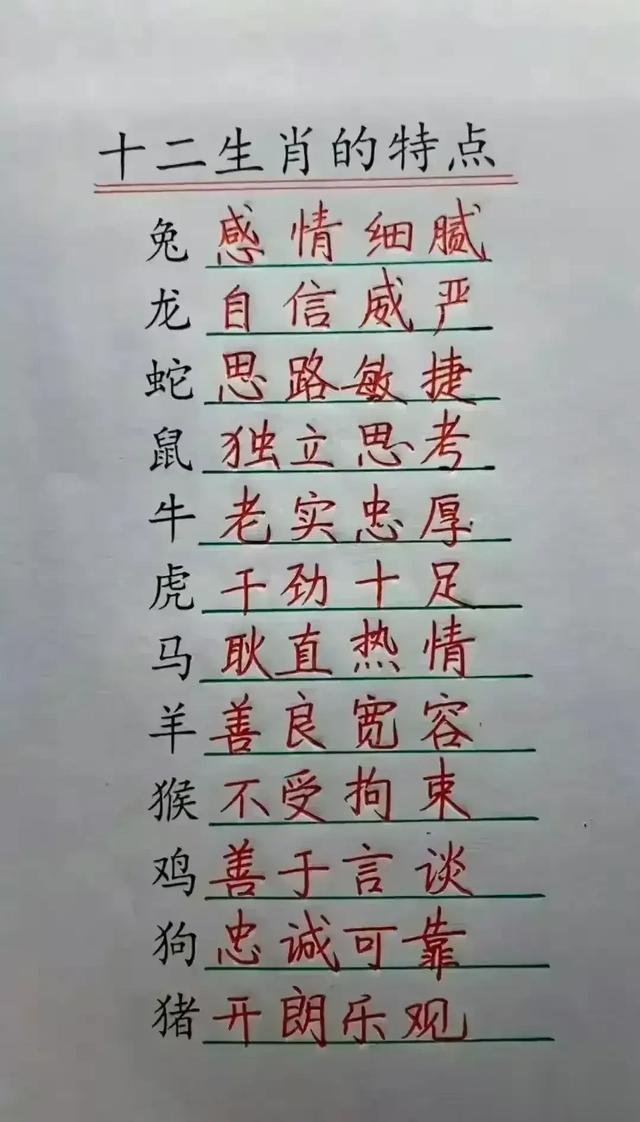 十二生肖的特点
兔 感情细腻
龙 自信威严
蛇 思路敏捷
鼠 独立思考
牛 老实忠厚
虎 干劲十足
马 耿直热情
羊 善良宽容
猴 不受拘束
鸡 善于言谈
狗 忠诚可靠
猪 开朗乐观